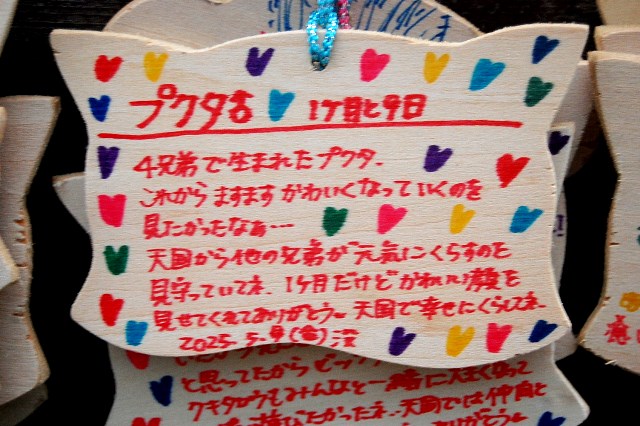 プクタ古 1ケ月と9日
4兄弟で生まれたプクタ.
これから ますます かわいくなっていくのを
見たかったなぁ…
天国から他の兄弟が元気にくらすのを
見守っていてネ. 1ケ月だけど かわいい姿を
見せてくれてありがとう。天国で幸せにくらしてネ.
2025. 5. 9(金)没
と思ってたから
みんなと一緒に大きくなって
遊びたかったネ..天国では仲良く